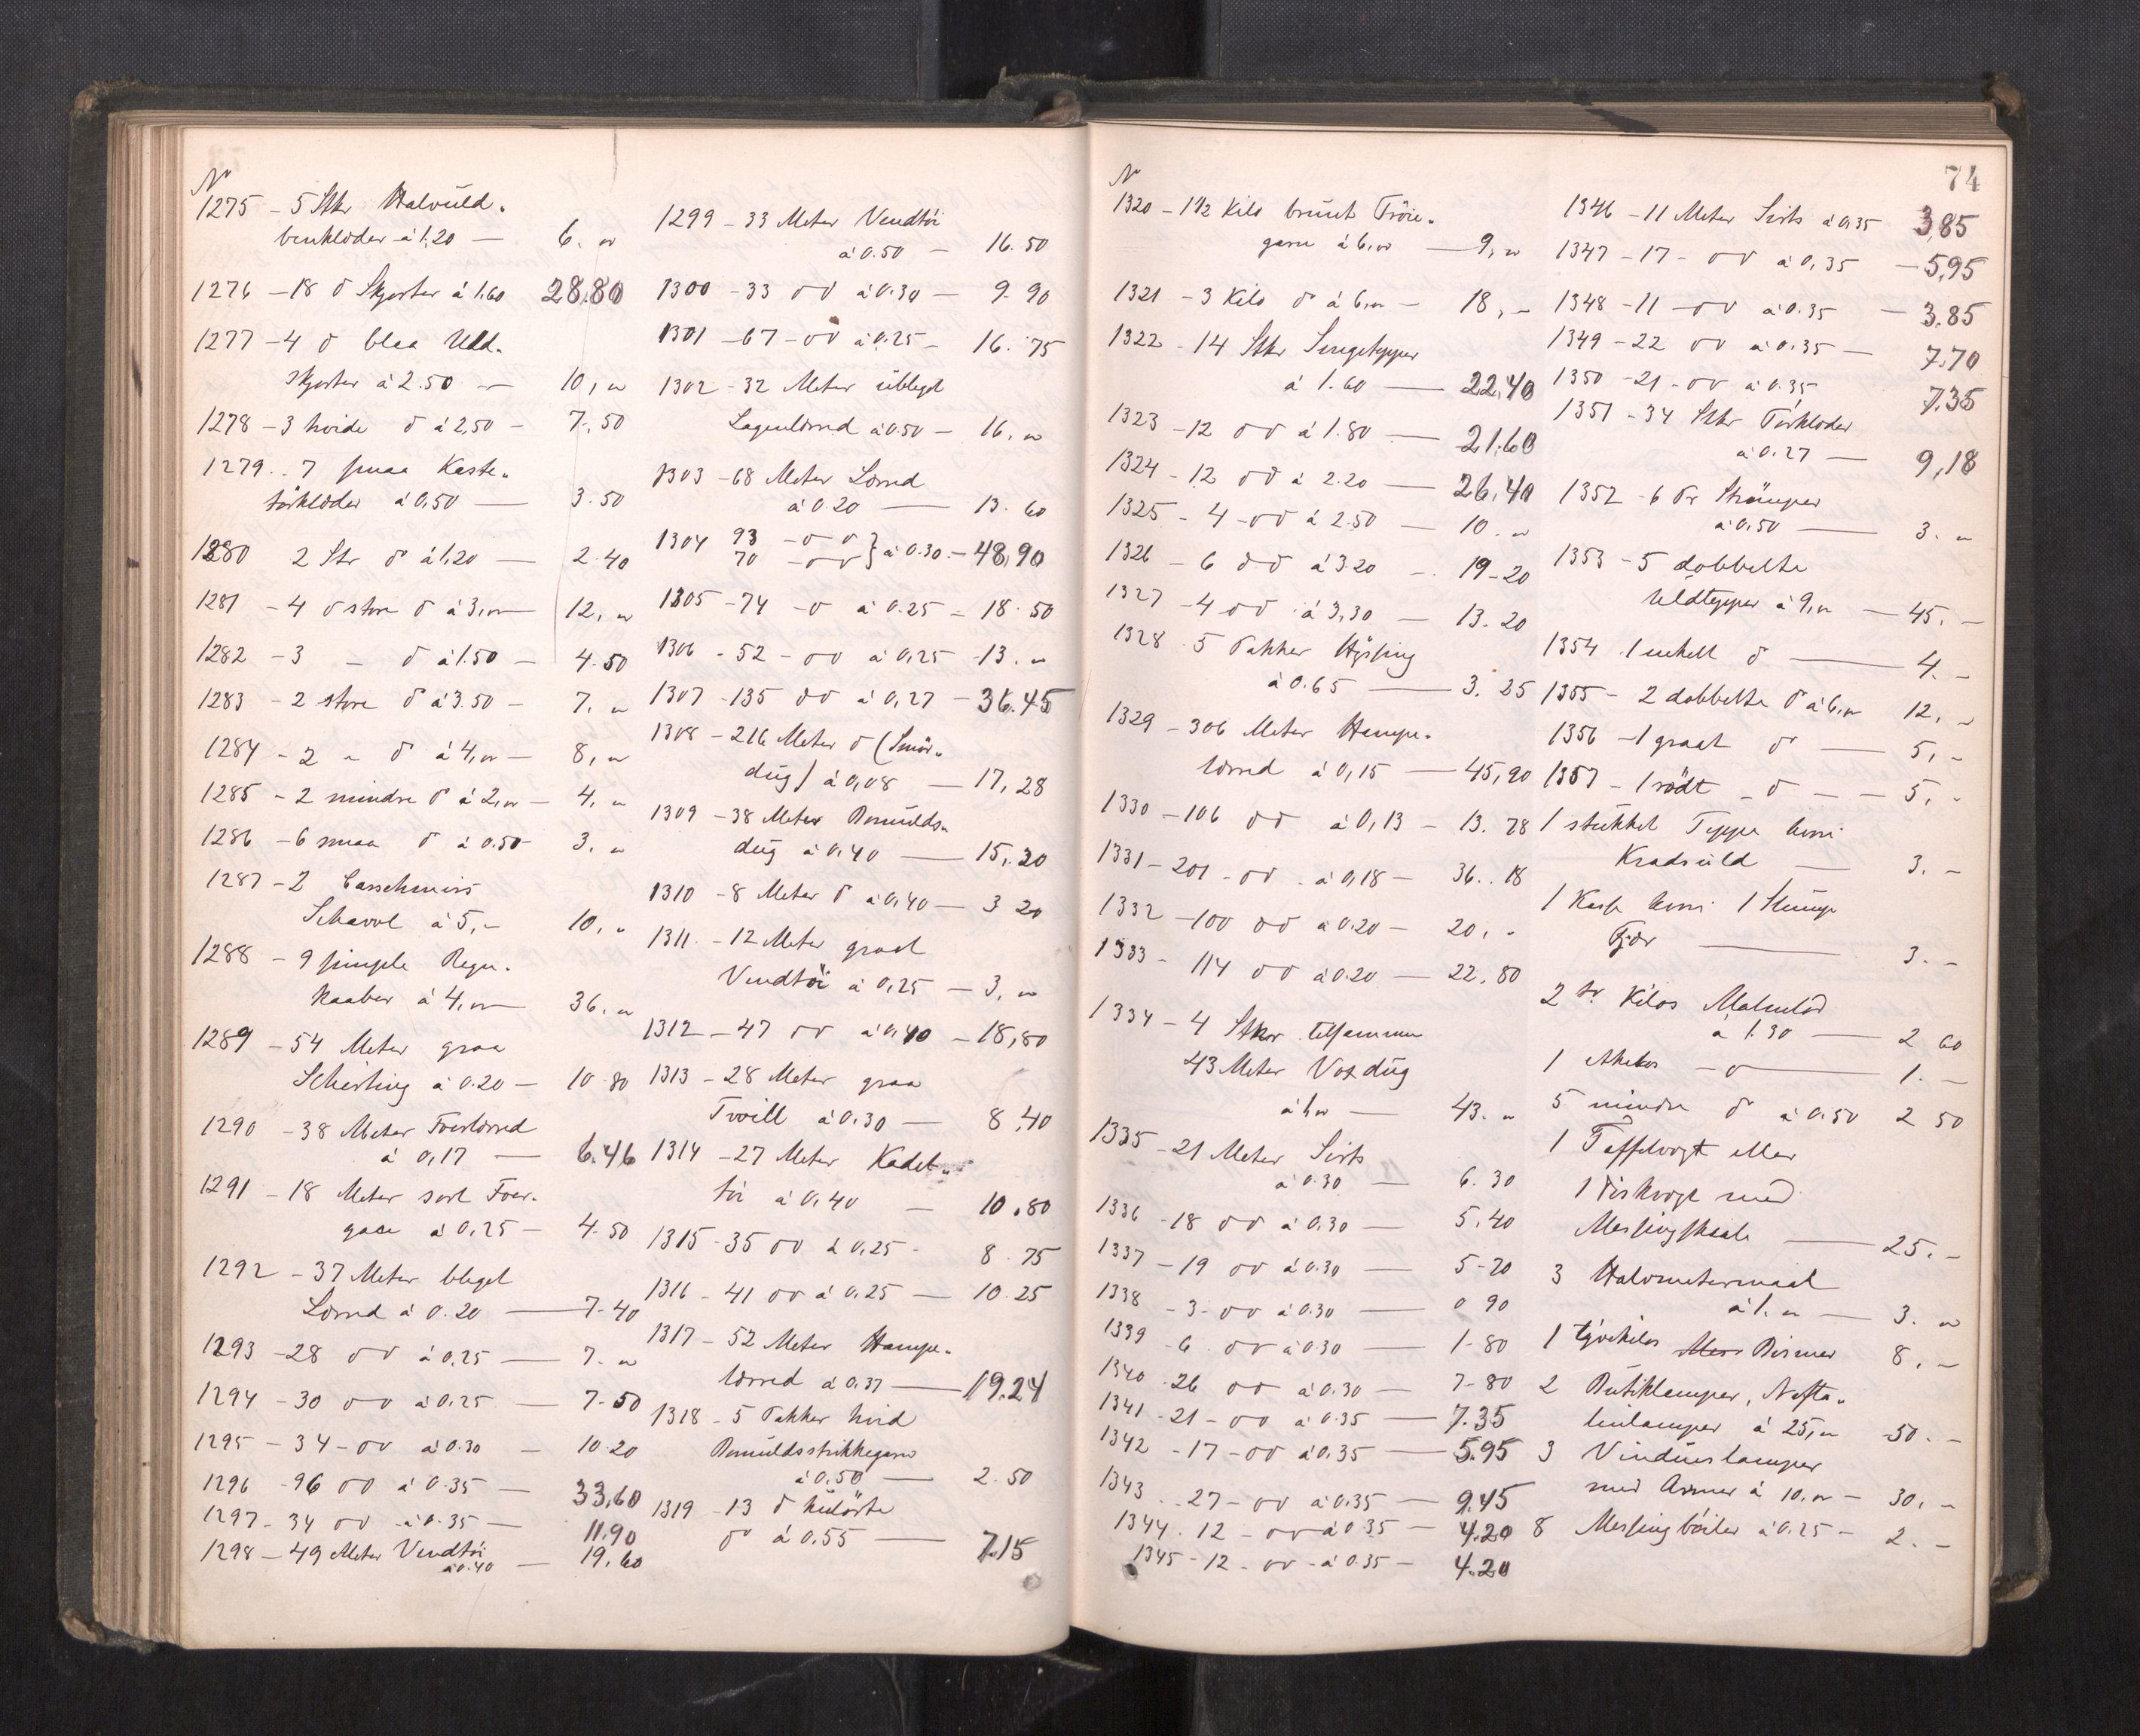 No
1275 - 5 Stkr Halvuld-
benklæder à 1,20 — 6. "
1276 - 18 do Skjorter à 1.60 28,80
1277 - 4 do blaa Uld-
skjorter à 2.50 — 10, "
1278 - 3 hvide do à 2,50 - 7,50
1279 - 7 smaa Kaste-
tørklæder à 0,50 — 3.50
1280 2 Str do à 1,20 — 2.40
1281 - 4 do store do à 3, " — 12, "
1282 - 3 - do à 1.50 - 4.50
1283 - 2 store do à 3.50 - 7. "
1284 - 2 " do à 4, " - 8, "
1285 - 2 mindre do à 2, " - 4, "
1286 - 6 smaa do à 0.50 - 3. "
1287 - 2 Casschmirs
Schavl à 5, - 10, "
1288 - 9 simple Regn-
kaaber à 4, " — 36. "
1289 - 54 Meter graa
Schirting à 0.20 - 10.80
1290 - 38 Meter Foerlærred
à 0,17 — 6.46
1291 - 18 Meter sort Foer-
gace à 0,25 - 4.50
1292 - 37 Meter bleget
Lærred à 0.20 — 7.40
1293 - 28 do do à 0,25 — 7. "
1294 - 30 do do à 0.25 — 7.50
1295 - 34 - do do à 0.30 - 10.20
1296 - 96 do do à 0.35 — 33,60
1297 - 34 do do à 0.35 — 11.90
1298 - 49 Meter Vendtøi
à 0.40 — 19,60
1299 - 33 Meter Vendtøi
à 0.50 - 16.50
1300 - 33 do do à 0.30 - 9.90
1301 - 67 - do do à 0.25 - 16.75
1302 - 32 Meter ubleget
Lagenlærred à 0.50 - 16, "
1303 - 68 Meter Lærred
à 0.20 — 13.60
1304 93 - do do
70 - do do } à 0.30 - 48,90
1305 - 74 - do à 0.25 - 18.50
1306 - 52 - do do à 0,25 - 13. "
1307 - 135 do do à 0,27 - 36.45
1308 - 216 Meter do (Smør-
dug) à 0,08 — 17,28
1309 - 38 Meter Bomulds-
dug à 0,40 — 15,20
1310 - 8 Meter do à 0,40 - 3 20
1311 - 12 Meter graat
Vendtøi à 0,25 - 3, "
1312 - 47 do do à 0,40 - 18,80
1313 - 28 Meter graa
Tvill à 0,30 — 8,40
1314 - 27 Meter Kadet-
tøi à 0,40 — 10.80
1315 - 35 do do à 0,25 - 8.75
1316 - 41 do do à 0,25 — 10.25
1317 - 52 Meter Hampe-
lærred à 0,37 — 19.24
1318 - 5 Pakker hvid
Bomuldsstrikkegarn
à 0,50 — 2.50
1319 - 13 do kulørte
do à 0.55 — 7.15
74
No
1320 - 1 1/2 Kilo brunt Trøie-
garn à 6, " — 9, "
1321 - 3 Kilo do à 6, " - 18, -
1322 - 14 Stkr Sengetepper
à 1.60 — 22,40
1323 - 12 do do à 1.80 — 21.60
1324 - 12 do do à 2.20 — 26,40
1325 - 4 - do do à 2.50 — 10. "
1326 - 6 do do à 3.20 - 19-20
1327 - 4 do do à 3,30 — 13.20
1328 5 Pakker Hysing
à 0.65 — 3.25
1329 - 306 Meter Hampe-
lærred à 0,15 — 45,90
1330 - 106 do do à 0,13 - 13.78
1331 - 201 - do do à 0,18 - 36.18
1332 - 100 do do à 0.20 - 20, "
1333 - 114 do do à 0.20 — 22,80
1334 - 4 Stkr tilsammen
43 Meter Voxdug
à 1, " — 43. "
1335 - 21 Meter Sirts
à 0.30 — 6.30
1336 - 18 do do à 0,30 — 5,40
1337 - 19 do do à 0.30 — 5-70
1338 - 3 - do do à 0.30 — 0 90
1339 - 6 do do à 0.30 — 1-80
1340 - 26 do do à 0.30 — 7-80
1341 - 21 - do do à 0.35 — 7.35
1342 - 17 - do do à 0.35 — 5.95
1343 - 27 - do do à 0.35 — 9.45
1344 . 12 - do do à 0.35 - 4.20
1345 - 12 - do do à 0.35 - 4.20
1346 - 11 Meter Sirts à 0,35 3,85
1347 - 17 - do do à 0,35 - 5,95
1348 - 11 - do do à 0.35 - 3.85
1349 - 22 do do à 0.35 — 7.70
1350 - 21 - do do à 0.35 7.35
1351 - 34 Stkr Tørklæder
à 0.27 — 9,18
1352 - 6 Pr Strømper
à 0,50 — 3. "
1353 - 5 dobbelte
Uldtepper à 9, " — 45. -
1354 1 enkelt do — 4. -
1355 - 2 dobbelte do à 6, " 12, -
1356 - 1 graat do — 5, -
1357 - 1 rødt - do - - 5, -
1 stukket Teppe hvori
Kradsuld — 3. -
1 Kasse hvori 1 Slump
Fjær — 3. -
2 to Kilos Malmlod
à 1.30 — 2 60
1 do — 1. -
5 mindre do à 0.50 2 50
1 Taffelvægt eller
1 Diskvægt med
Messingskaale — 25. -
3 Halvmetermaal
à 1. " — 3. "
1 tyvekilos Mess Bismer 8, -
2 Butiklamper, Nafta-
linlamper à 25, " 50. -
3 Vinduslamper
med Armer à 10, " - 30, -
8 Messingbøiler à 0.25 - 2. -